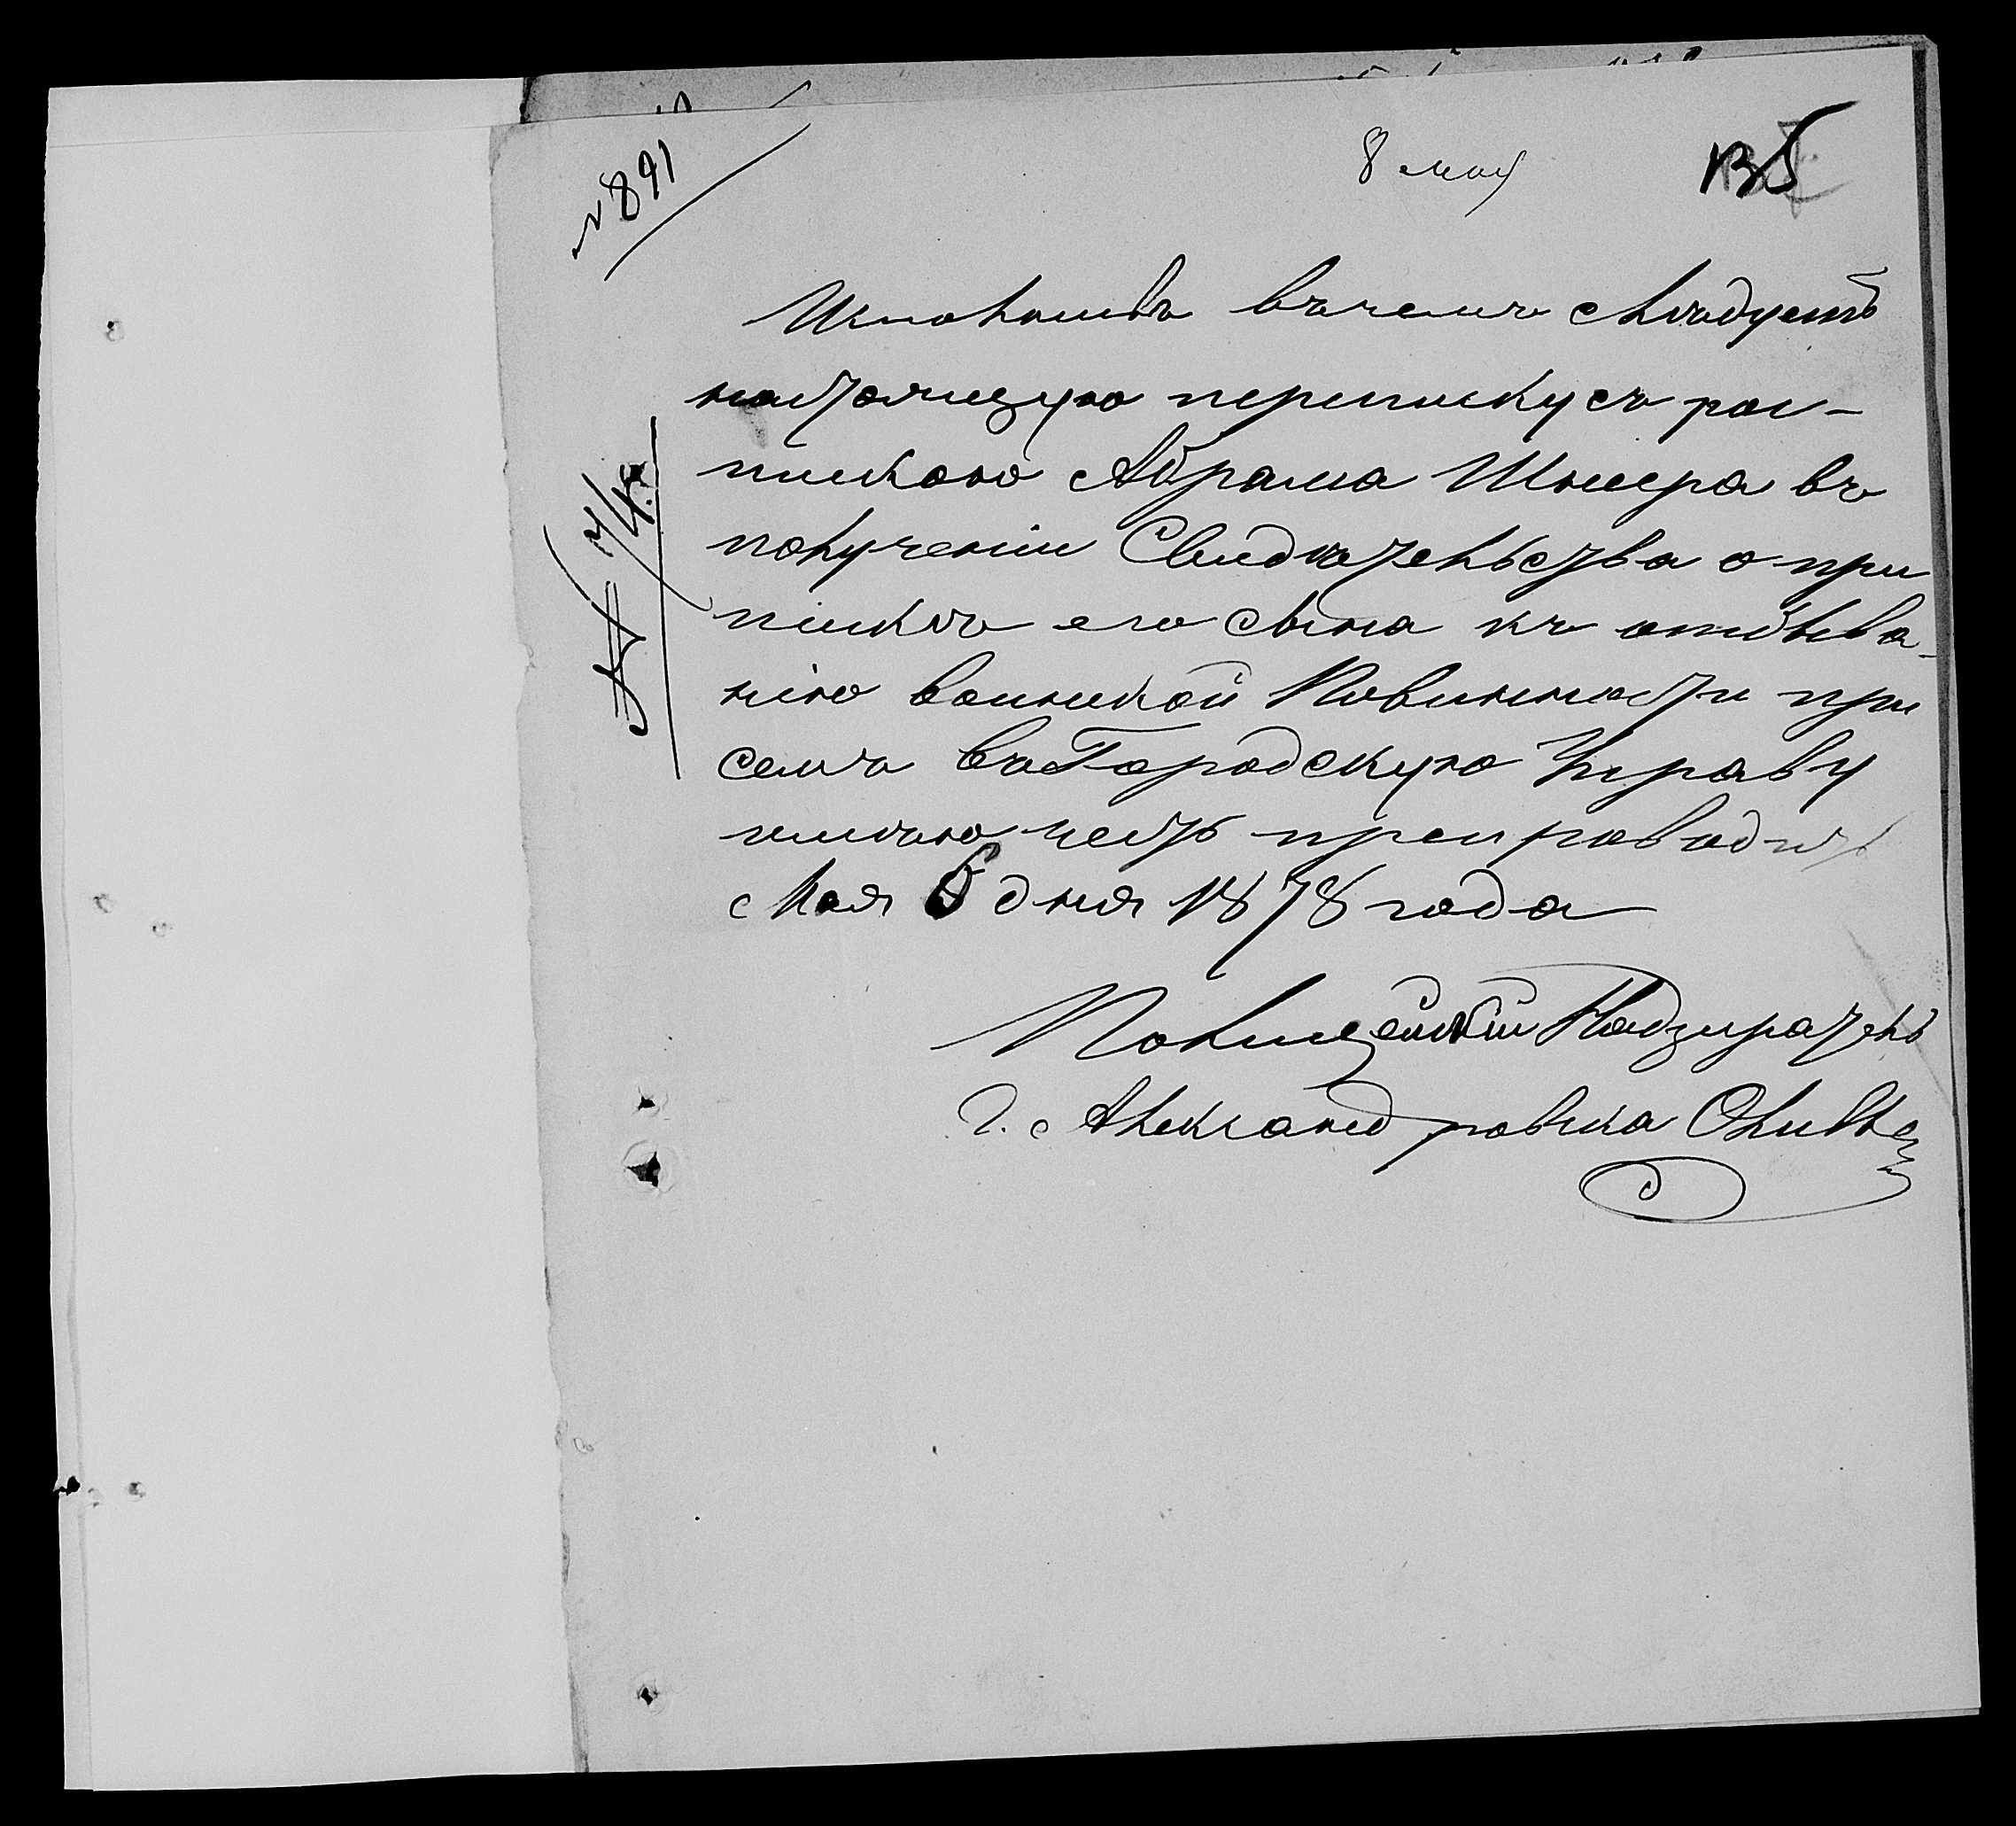 № 891
8 мая
135
Исполнивъ въ чемъ слѣдуетъ
настоящую переписку съ рос-
пискою Абрама Шнеера въ
полученіи Свидѣтельства о при
пискѣ его сына къ отбыва-
нію воинской Повинности при
семъ въ Городскую Управу
имѣю честь препроводить
Мая 6 дня 1878 года
Полицейскій Надзиратель
г. Александровска